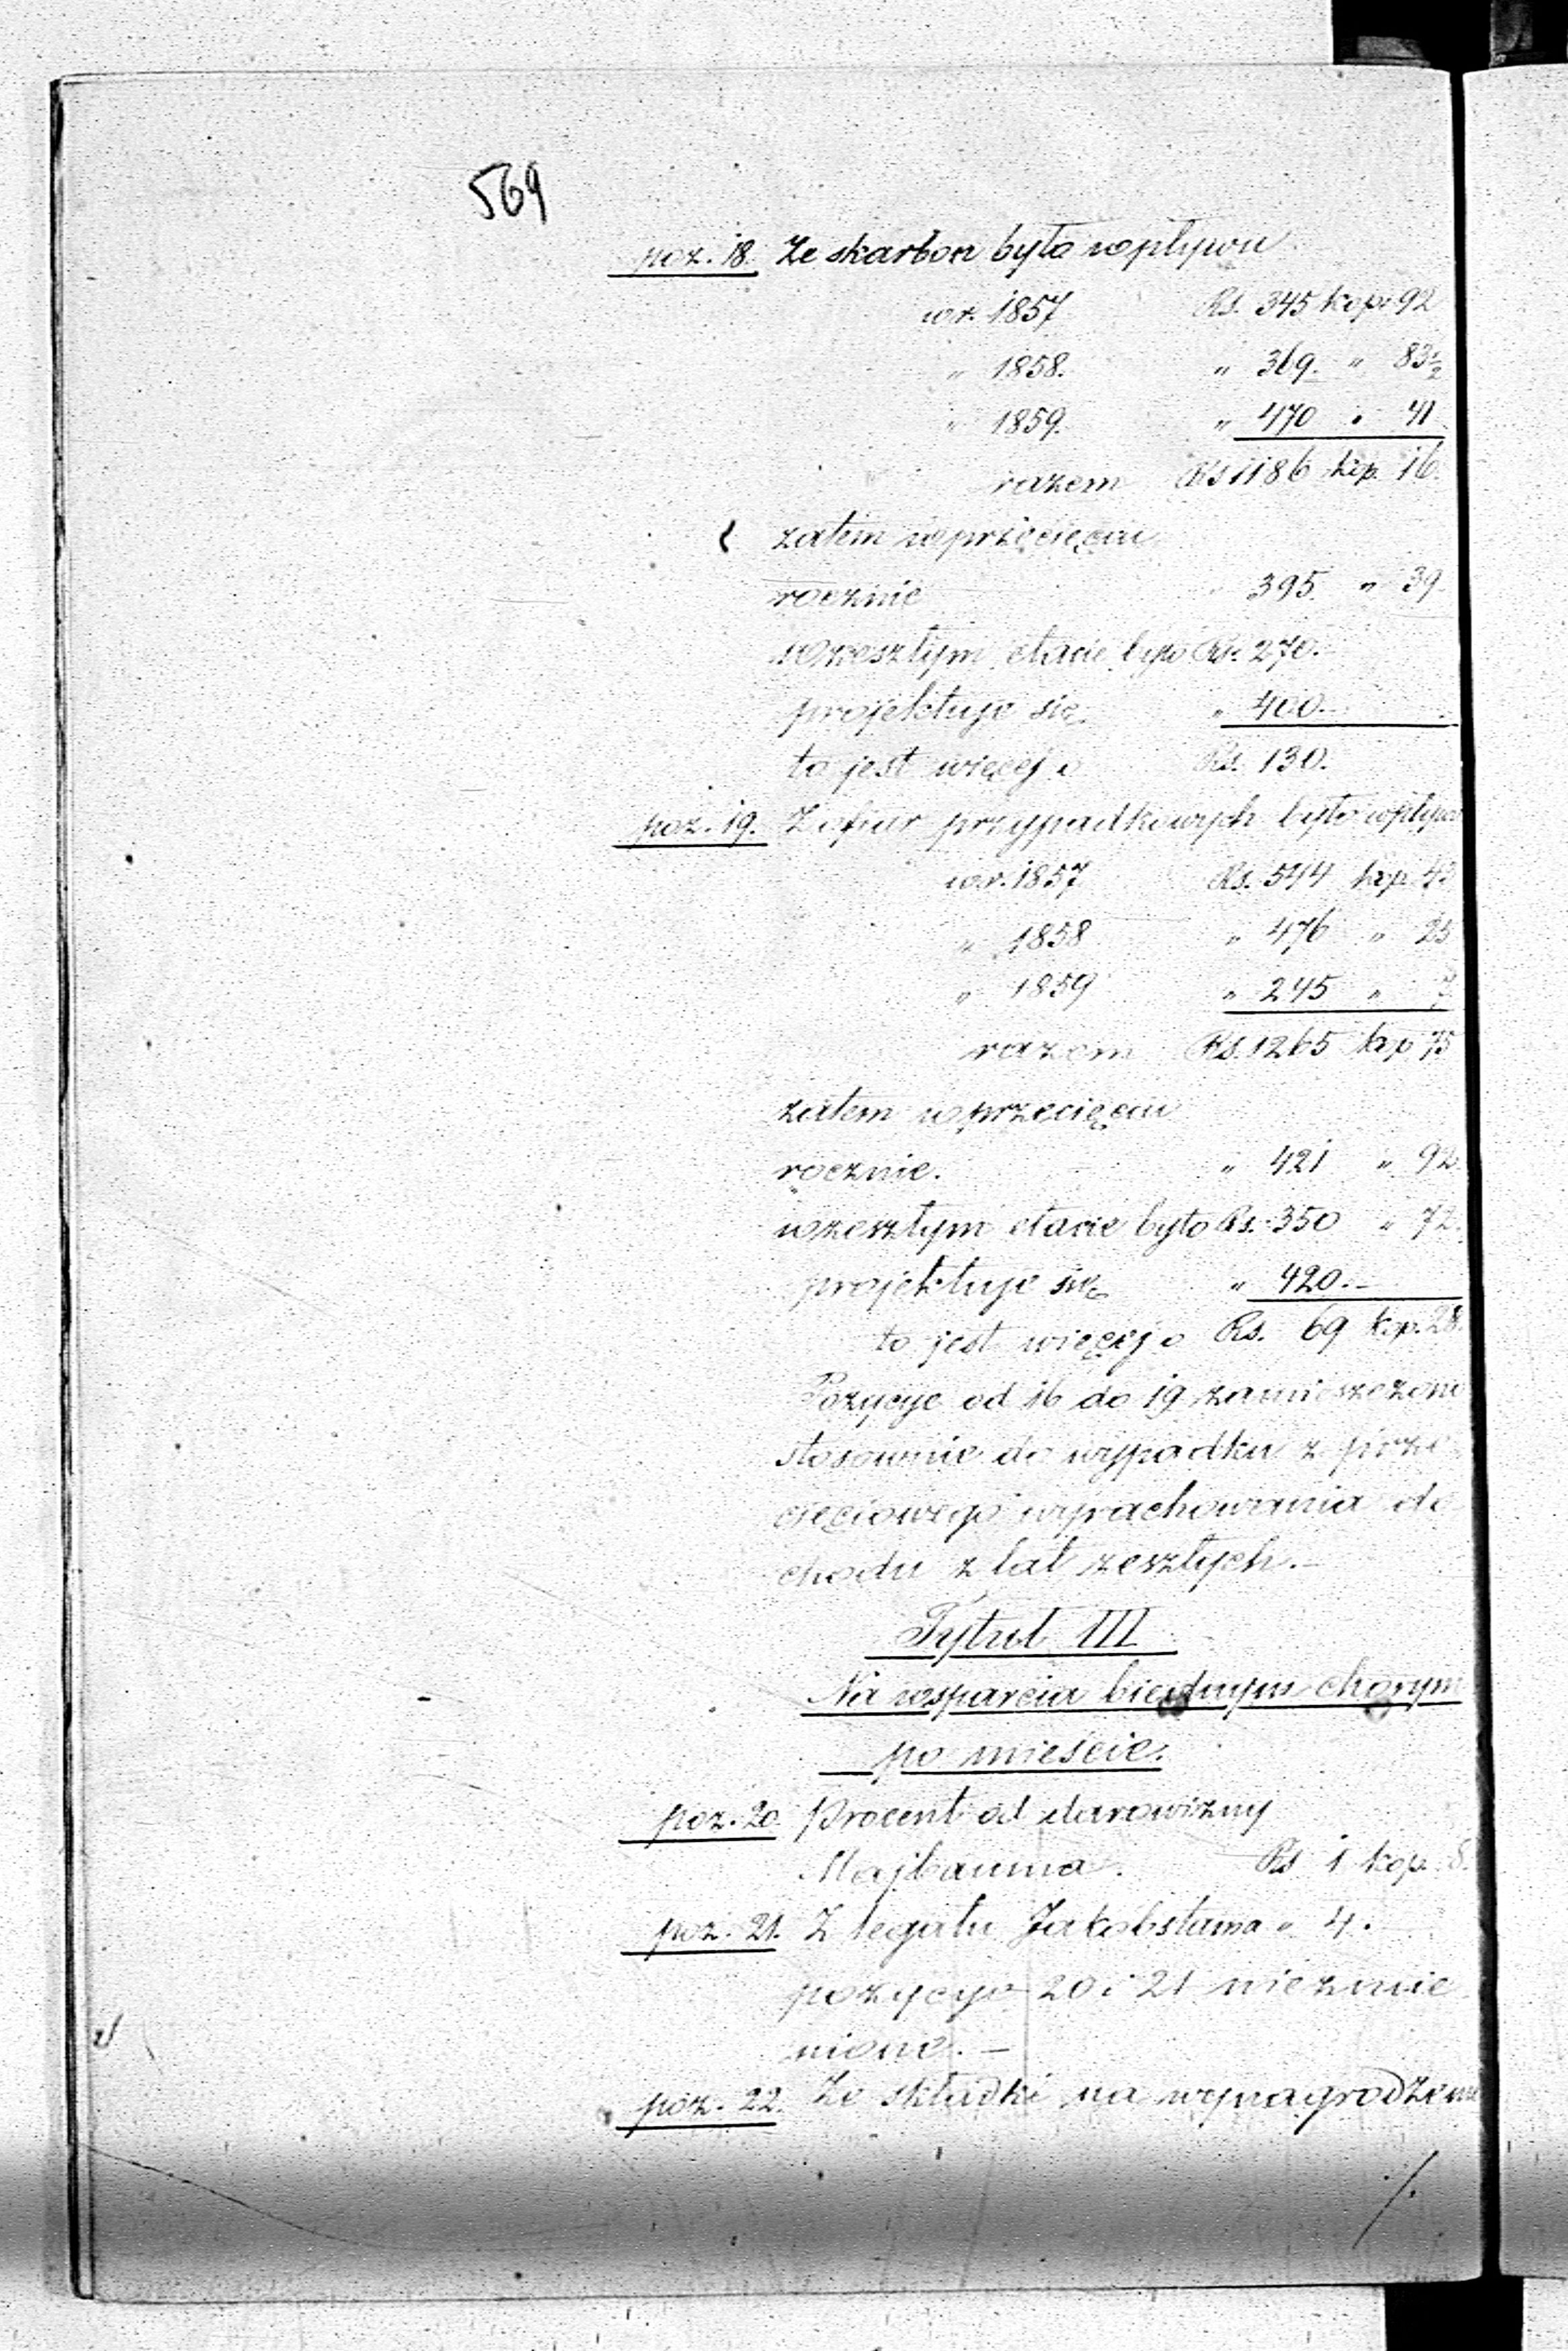 569
poz. 18. Ze skarbon było wpływu
w r. 1857 Rs. 345 kop. 92
„ 1858. „ 369. „ 83½
„ 1859. „ 470 „ 41
razem Rs 1186 kop. 16.
zatem w przecięciu
rocznie 395. „ 39.
w zeszłym etacie było Rs. 270.
projektuje się „ 400.
to jest więcej o Rs. 130.
poz. 19. Z ofiar przypadkowych było wpływu
w r. 1857 Rs. 544 kop. 43
„ 1858 „ 476 „ 25
„ 1859 „ 245 „ 7
razem Rs. 1265 kop 75
zatem w przecięciu
rocznie. „ 421 „ 92.
w zeszłym etacie było Rs. 350 „ 72.
projektuje się „ 420.—
to jest więcej o Rs. 69 kop. 28.
Pozycye od 16 do 19 zamieszczono
stosownie do wypadku z prze
cięciowego wyrachowania do
chodu z lat zeszłych.—
Tytuł III
Na wsparcia biednym chorym
po mieście.
poz. 20. Procent od darowizny
Majbauma. Rs 1 kop. 8.
poz. 21. Z legatu Jakobstama „ 4.
pozycye 20 i 21 niezmie
nione. —
poz. 22. Ze składki na wynagrodzenie
./.